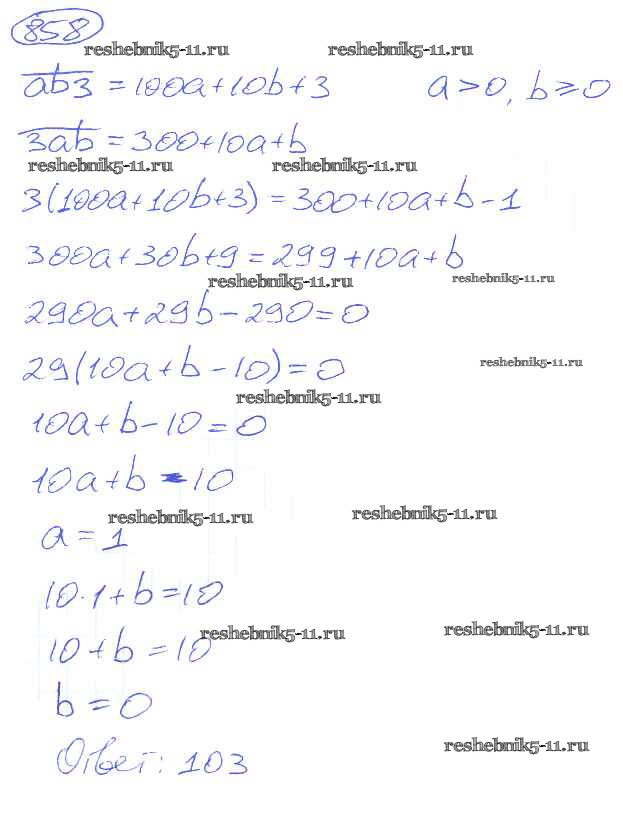 858
reshebnik5-11.ru reshebnik5-11.ru
ab3 = 100a+10b+3 a>0, b≥0
3ab = 300+10a+b
reshebnik5-11.ru reshebnik5-11.ru
3(100a+10b+3) = 300+10a+b-1
300a+30b+9 = 299+10a+b
reshebnik5-11.ru reshebnik5-11.ru
290a+29b-290=0
29(10a+b-10)=0 reshebnik5-11.ru
reshebnik5-11.ru
10a+b-10=0
10a+b=10
reshebnik5-11.ru reshebnik5-11.ru
a=1
10·1+b=10
reshebnik5-11.ru reshebnik5-11.ru
10+b=10
b=0
Ответ: 103 reshebnik5-11.ru